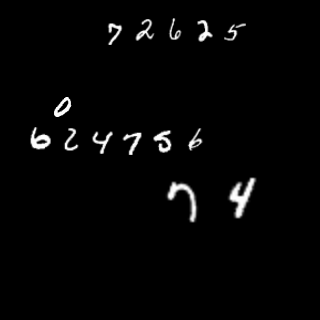 72625
0
624756
74